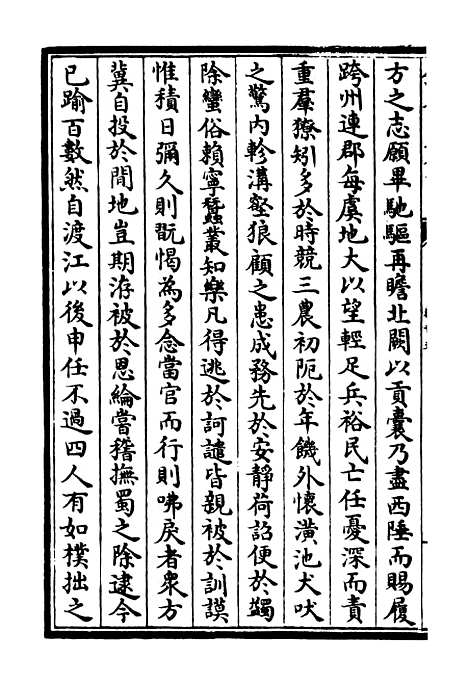 方之志願畢馳驅再瞻北闕以貢囊乃盡西陲而賜履
跨州連郡每虞地大以望輕足兵裕民亡任憂深而責
重羣獠矧多於時競三農初阨於年饑外懷潢池犬吠
之驚内軫溝壑狼顧之患成務先於安靜荷詔便於蠲
除蠻俗賴寧蠶叢知樂凡得逃於訶譴皆親被於訓謨
惟積日彌久則翫愒為多念當官而行則咈戾者衆方
冀自投於閒地豈期洊被於恩綸嘗稽撫蜀之除逮今
已踰百數然自渡江以後申任不過四人有如樸拙之